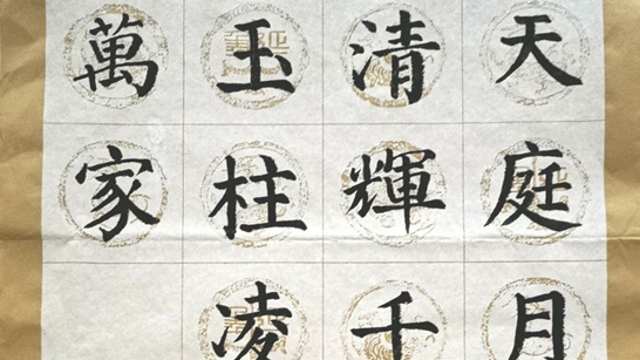 天庭月
清輝千
玉柱凌
萬家